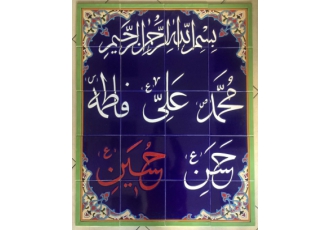 بِسْمِ اللهِ الرَّحْمٰنِ الرَّحِيمِ
مُحَمَّد عَلِىّ ع فاطمه س
حَسَن ع حُسَيْن ع